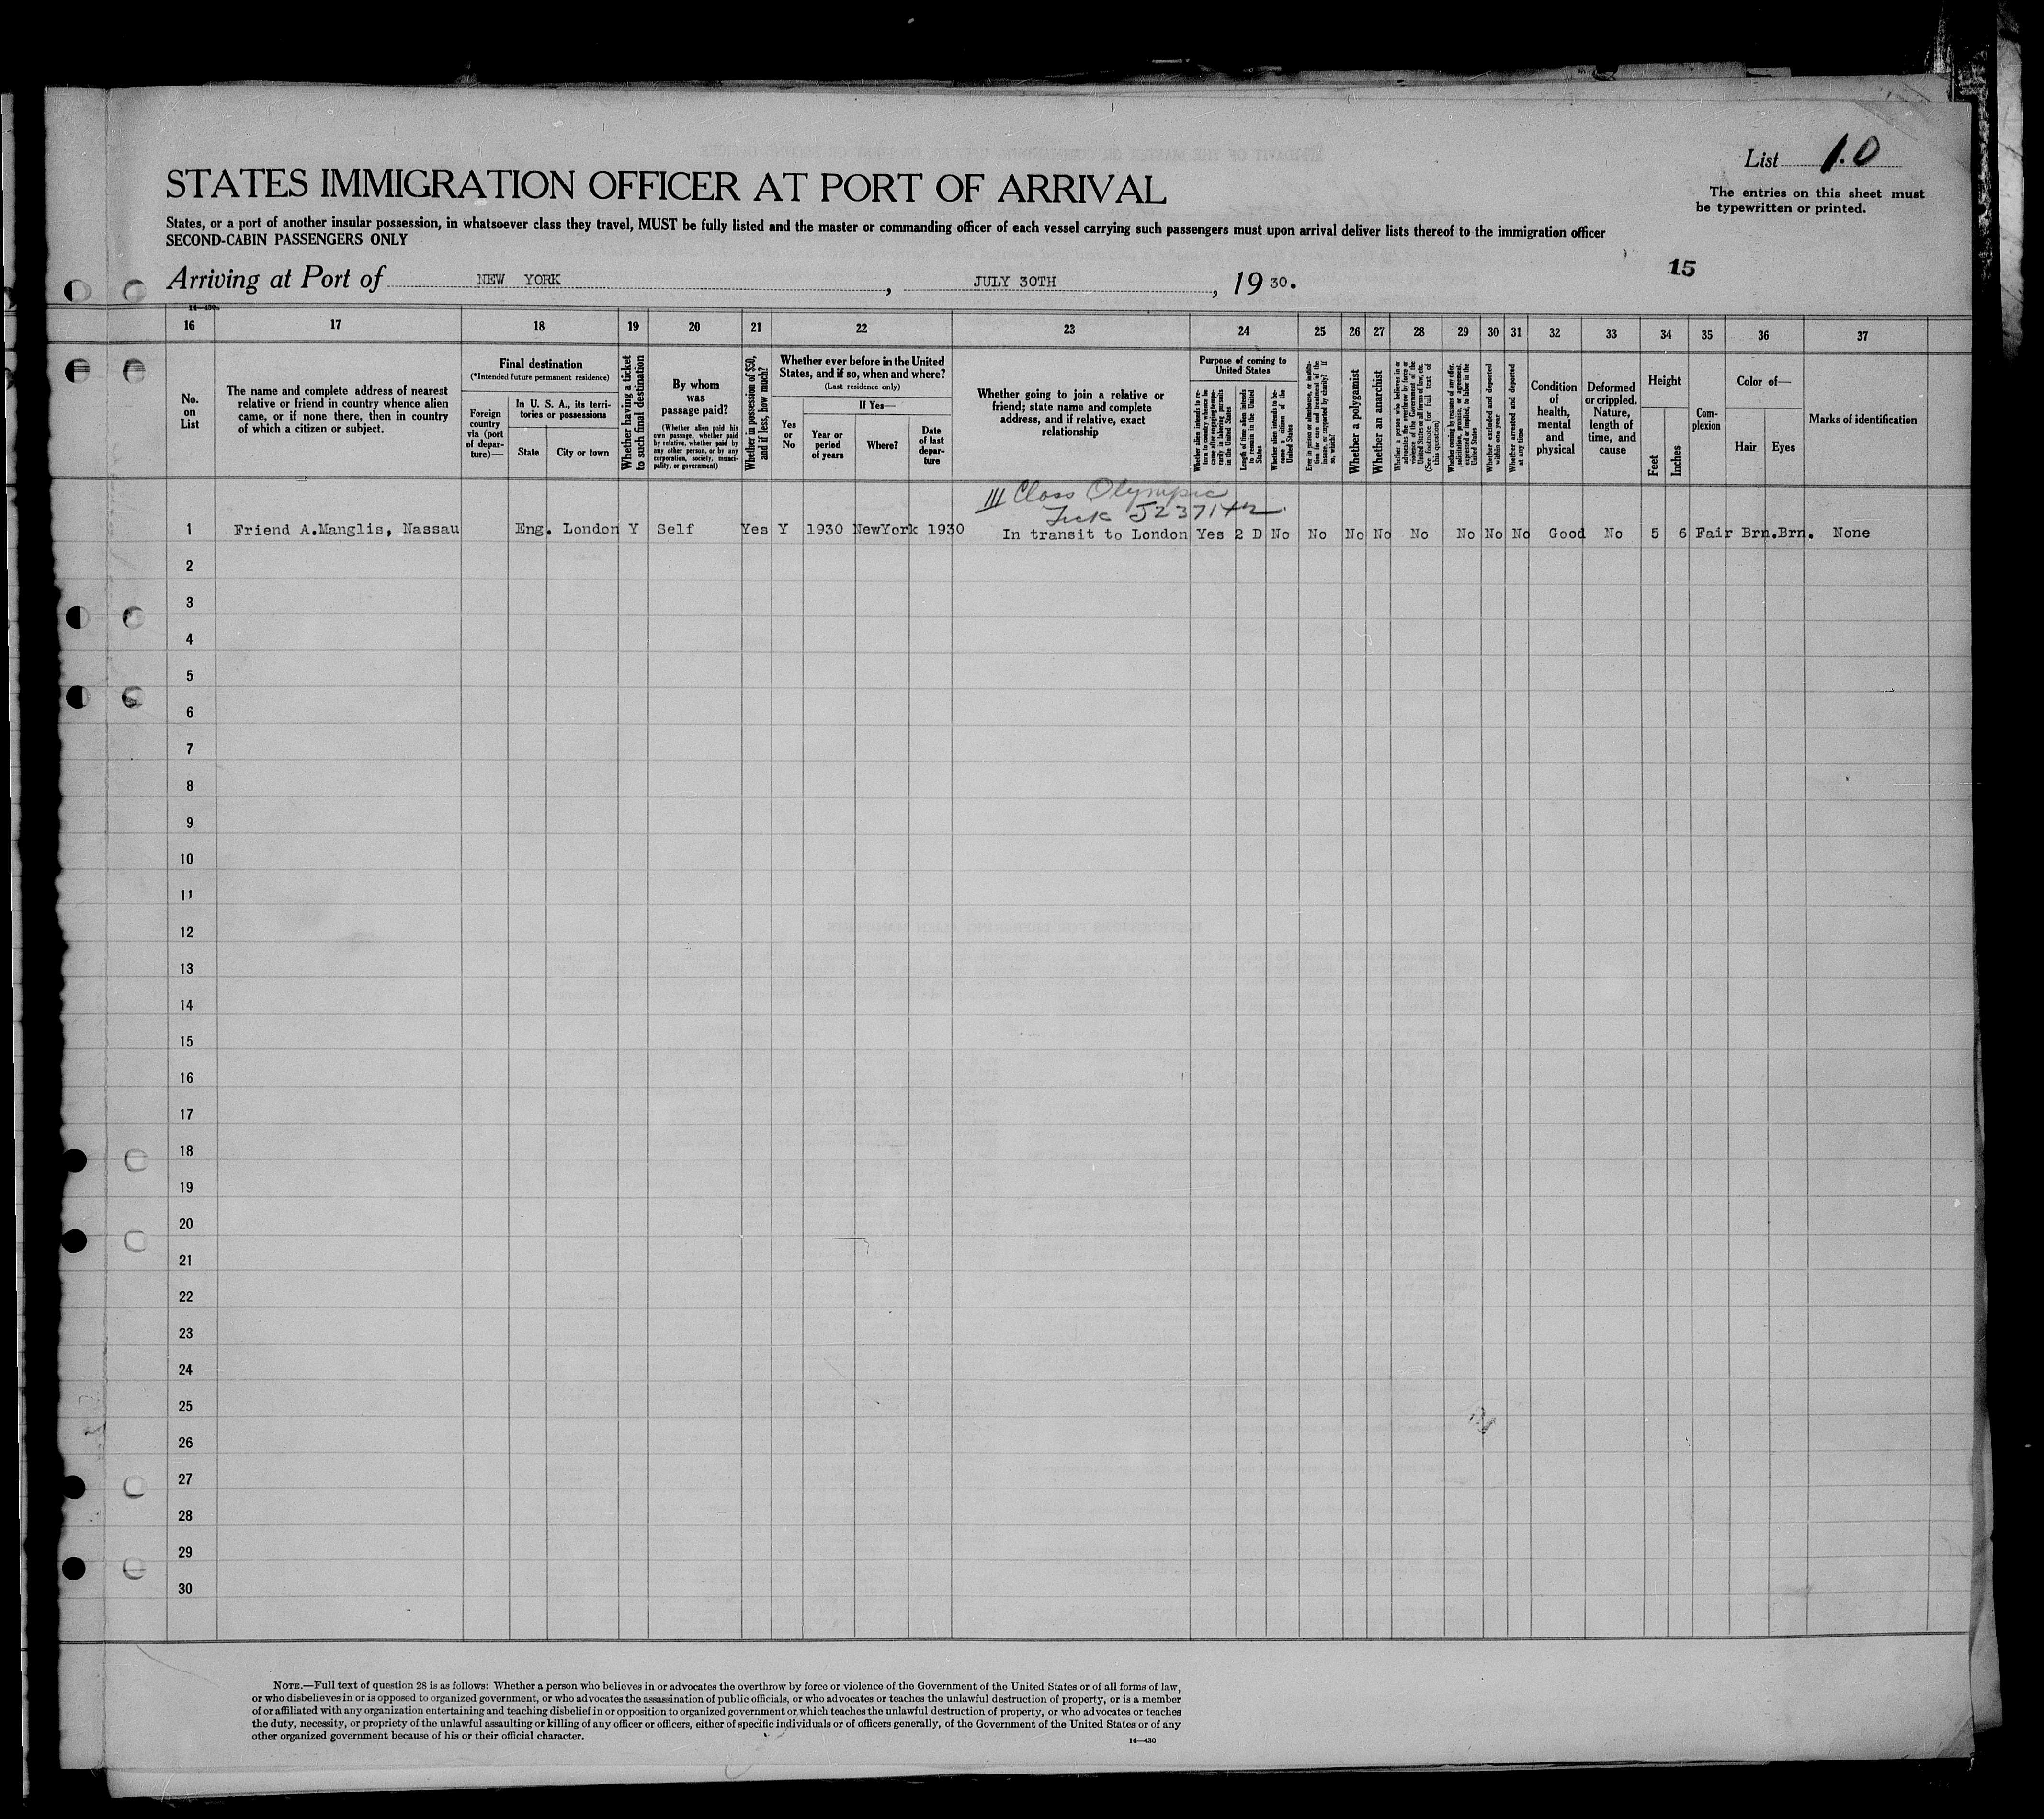 List 1.0
STATES IMMIGRATION OFFICER AT PORT OF ARRIVAL
The entries on this sheet must
be typewritten or printed.
States, or a port of another insular possession, in whatsoever class they travel, MUST be fully listed and the master or commanding officer of each vessel carrying such passengers must upon arrival deliver lists thereof to the immigration officer
SECOND-CABIN PASSENGERS ONLY
15
Arriving at Port of NEW YORK, JULY 30TH, 1930.
14—430
16 17 18 19 20 21 22 23 24 25 26 27 28 29 30 31 32 33 34 35 36 37
No.
on
List
The name and complete address of nearest
relative or friend in country whence alien
came, or if none there, then in country
of which a citizen or subject.
Final destination
(*Intended future permanent residence)
Foreign
country
via (port
of depar-
ture)—
In U. S. A., its terri-
tories or possessions
State
City or town
Whether having a ticket
to such final destination
By whom
was
passage paid?
(Whether alien paid his
own passage, whether paid
by relative, whether paid by
any other person, or by any
corporation, society, munici-
pality, or government)
Whether in possession of $50,
and if less, how much?
Whether ever before in the United
States, and if so, when and where?
(Last residence only)
Yes
or
No
If Yes—
Year or
period
of years
Where?
Date
of last
depar-
ture
Whether going to join a relative or
friend; state name and complete
address, and if relative, exact
relationship
Purpose of coming to
United States
Whether alien intends to re-
turn to country whence he
came after engaging tempo-
rarily in laboring pursuits
in the United States
Length of time alien intends
to remain in the United
States
Whether alien intends to be-
come a citizen of the
United States
Ever in prison or almshouse, or institu-
tion for care and treatment of the
insane, or supported by charity? If
so, which?
Whether a polygamist
Whether an anarchist
Whether a person who believes in or
advocates the overthrow by force or
violence of the Government of the
United States or all forms of law, etc.
(See footnote for full text of
this question)
Whether coming by reason of any offer,
solicitation, promise, or agreement,
expressed or implied, to labor in the
United States
Whether excluded and deported
within one year
Whether arrested and deported
at any time
Condition
of
health,
mental
and
physical
Deformed
or crippled.
Nature,
length of
time, and
cause
Height
Feet
Inches
Com-
plexion
Color of—
Hair
Eyes
Marks of identification
III Class Olympic
Tick J23714
1 Friend A.Manglis, Nassau Eng. London Y Self Yes Y 1930 NewYork 1930 In transit to London Yes 2 D No No No No No No No No Good No 5 6 Fair Brn.Brn. None
2
3
4
5
6
7
8
9
10
11
12
13
14
15
16
17
18
19
20
21
22
23
24
25
26
27
28
29
30
NOTE.—Full text of question 28 is as follows: Whether a person who believes in or advocates the overthrow by force or violence of the Government of the United States or of all forms of law,
or who disbelieves in or is opposed to organized government, or who advocates the assassination of public officials, or who advocates or teaches the unlawful destruction of property, or is a member
of or affiliated with any organization entertaining and teaching disbelief in or opposition to organized government or which teaches the unlawful destruction of property, or who advocates or teaches
the duty, necessity, or propriety of the unlawful assaulting or killing of any officer or officers, either of specific individuals or of officers generally, of the Government of the United States or of any
other organized government because of his or their official character.
14—430